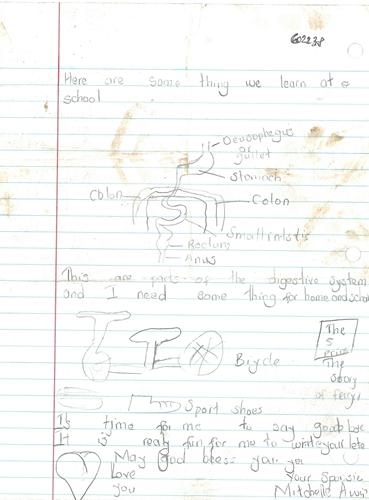 602238
Here are some thing we learn at
school
Oesophegus
or
gullet
Stomach
Colon
Colon
Small intistis
Rectum
Anus
This are parts of the digestive system
and I need some thing for home and
Bicycle
The
5
The
story
of
Sport shoes
It's time for me to say good bye
It is realy fun for me to write your
May God bless you
Love
you
Your
Mitchelle